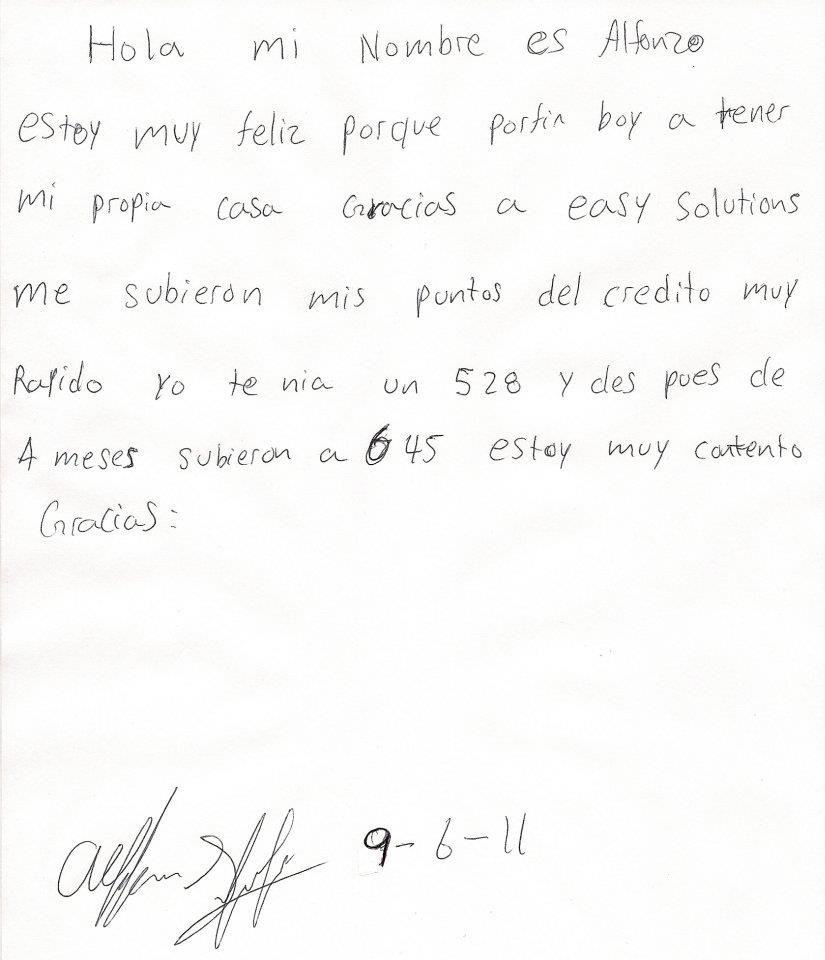 Hola mi Nombre es Alfonzo
estoy muy feliz porque porfin boy a tener
mi propia casa Gracias a easy solutions
me subieron mis puntos del credito muy
Rapido yo te nia un 528 y des pues de
4 meses subieron a 645 estoy muy contento
Gracias:
9-6-11